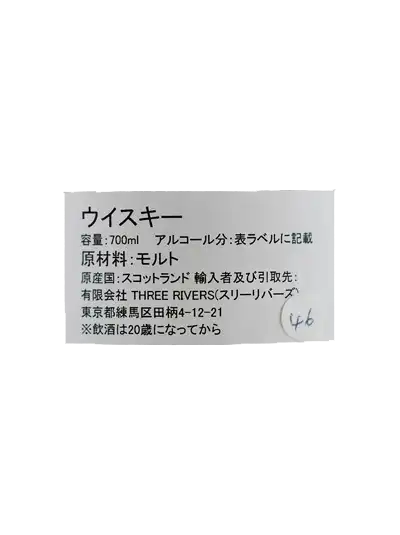 ウイスキー
容量:700ml　アルコール分:表ラベルに記載
原材料:モルト
原産国:スコットランド 輸入者及び引取先:
有限会社 THREE RIVERS(スリーリバーズ)
東京都練馬区田柄4-12-21
※飲酒は20歳になってから
46